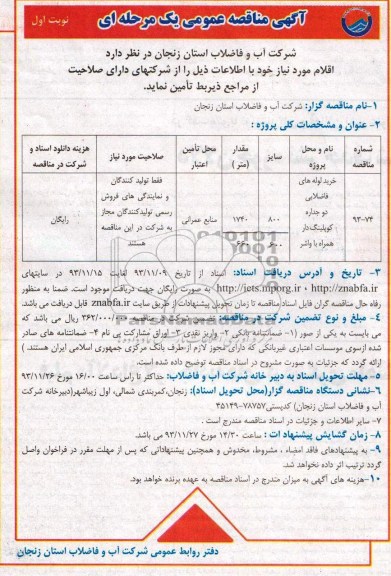 آگهی مناقصه عمومی یک مرحله ای
نوبت اول
شرکت آب و فاضلاب استان زنجان در نظر دارد
اقلام مورد نیاز خود با اطلاعات ذیل را از شرکتهای دارای صلاحیت
از مراجع ذیربط تأمین نماید.
۱-نام مناقصه گزار: شرکت آب و فاضلاب استان زنجان
۲- عنوان و مشخصات کلی پروژه :
شماره مناقصه
نام و محل پروژه
سایز
مقدار (متر)
محل تأمین اعتبار
صلاحیت مورد نیاز
هزینه دانلود اسناد و شرکت در مناقصه
۹۳-۷۴
خرید لوله های فاضلابی دو جداره کوپلینگ دار همراه با واشر
۸۰۰
۱۷۴۰
۶۰۰
۶۶۰
منابع عمرانی
فقط تولید کنندگان و نمایندگی های فروش رسمی تولیدکنندگان مجاز به شرکت در این مناقصه هستند
رایگان
۳- تاریخ و آدرس دریافت اسناد: اسناد از تاریخ ۹۳/۱۱/۰۹ لغایت ۹۳/۱۱/۱۵ در سایتهای
http://iets.mporg.ir ، http://znabfa.ir به صورت رایگان جهت دریافت موجود است. ضمنا به منظور
رفاه حال مناقصه گران فایل اسناد مناقصه تا زمان تحویل پیشنهادات از طریق سایت znabfa.ir قابل دریافت می باشد.
۴- مبلغ و نوع تضمین شرکت در مناقصه: تضمین شرکت در مناقصه ۳۶۲/۰۰۰/۰۰۰ ریال می باشد که
می بایست به یکی از صور (۱- ضمانتنامه بانکی ۲- واریز نقدی ۳- اوراق مشارکت بی نام ۴- ضمانتنامه های صادر
شده ازسوی موسسات اعتباری غیربانکی که دارای مجوز لازم از طرف بانک مرکزی جمهوری اسلامی ایران هستند. )
ارائه گردد که جزئیات به صورت مشروح در اسناد مناقصه توضیح داده شده است.
۵- مهلت تحویل اسناد به دبیر خانه شرکت آب و فاضلاب: حداکثر تا راس ساعت ۱۶/۰۰ مورخ ۹۳/۱۱/۲۶
۶-نشانی دستگاه مناقصه گزار(محل تحویل اسناد): زنجان،کمربندی شمالی، اول زیباشهر(دبیرخانه شرکت
آب و فاضلاب استان زنجان) کدپستی۷۸۷۵۷-۴۵۱۴۹
۷- سایر اطلاعات و جزئیات در اسناد مناقصه مندرج است .
۸- زمان گشایش پیشنهاد ات : ساعت ۱۴/۳۰ مورخ ۹۳/۱۱/۲۷ می باشد.
۹- به پیشنهادهای فاقد امضاء ، مشروط، مخدوش و همچنین پیشنهاداتی که پس از مهلت مقرر در فراخوان واصل
گردد ترتیب اثر داده نخواهد شد.
۱۰-هزینه های آگهی به میزان مندرج در اسناد مناقصه به عهده برنده خواهد بود.
دفتر روابط عمومی شرکت آب و فاضلاب استان زنجان